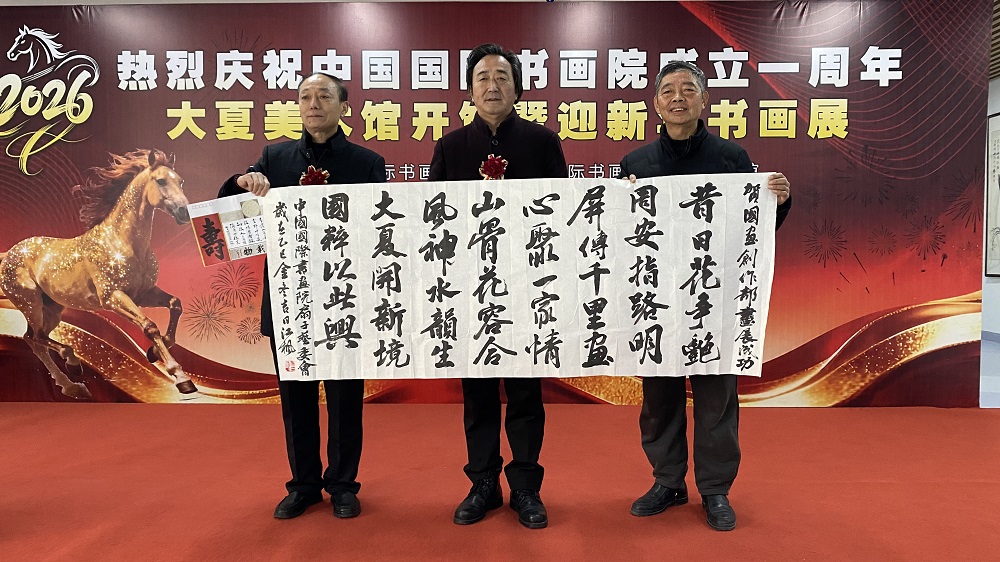 2026
热烈庆祝中国国际书画院成立一周年
大夏美术馆开馆暨迎新年书画展
际书画
际书画
賀國画創作部畫展成功
昔日花争艷
周安指路明
屏傳千里画
心聚一家情
山骨花容合
風神水韻生
大夏開新境
國粹以此興
中國國際書画院扇子藝委會
歲在乙巳金冬吉日江楓
壽